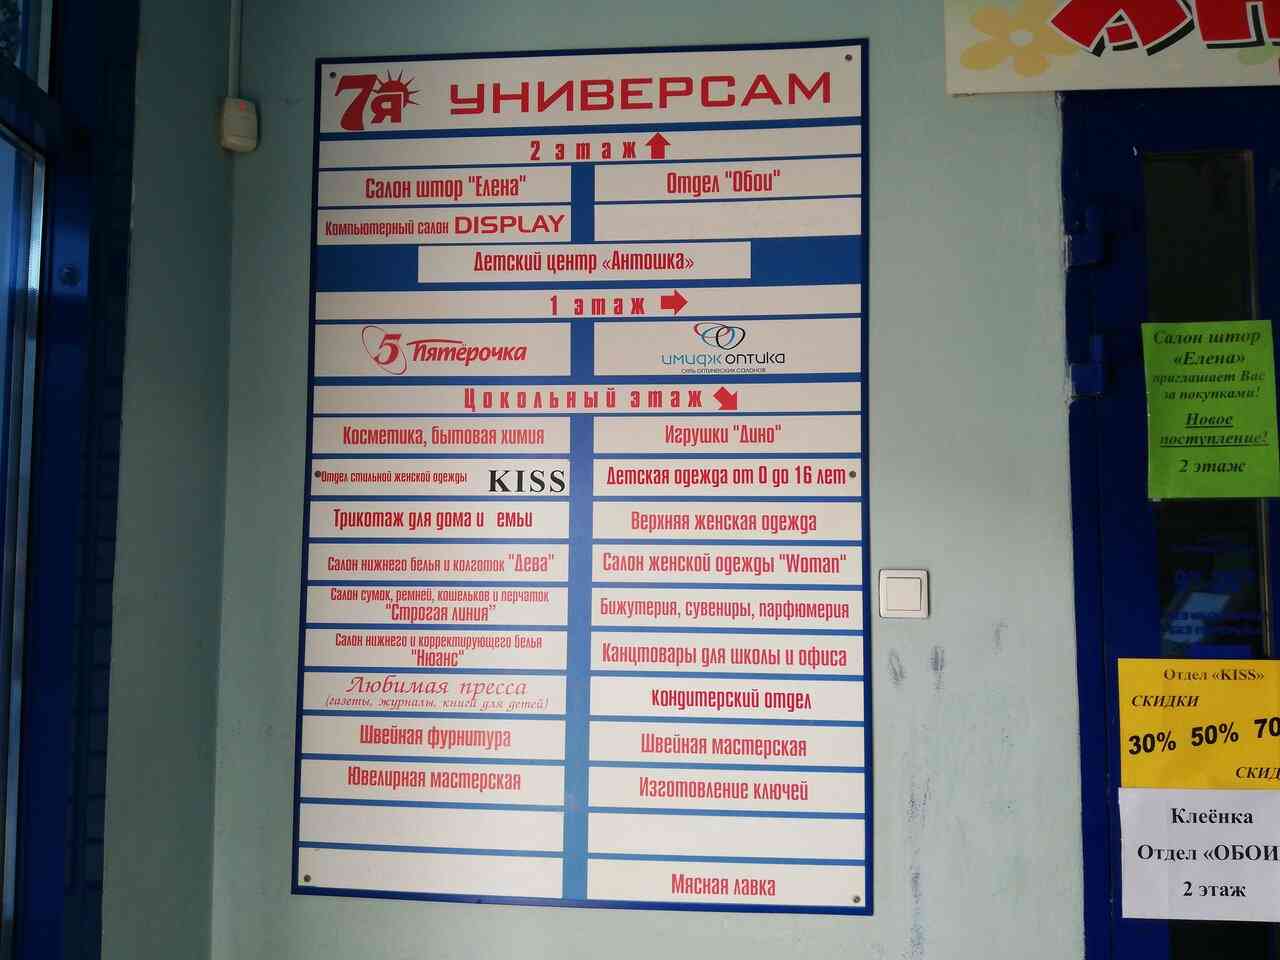 7Я УНИВЕРСАМ
2 этаж
Салон штор "Елена"
Отдел "Обои"
Компьютерный салон DISPLAY
Детский центр «Антошка»
1 этаж
5 Пятёрочка
имидж оптика
сеть оптических салонов
Цокольный этаж
Косметика, бытовая химия
Игрушки "Дино"
Отдел стильной женской одежды KISS
Детская одежда от 0 до 16 лет
Трикотаж для дома и емьи
Верхняя женская одежда
Салон нижнего белья и колготок "Дева"
Салон женской одежды "Woman"
Салон сумок, ремней, кошельков и перчаток
"Строгая линия"
Бижутерия, сувениры, парфюмерия
Салон нижнего и корректирующего белья
"Нюанс"
Канцтовары для школы и офиса
Любимая пресса
(газеты, журналы, книги для детей)
кондитерский отдел
Швейная фурнитура
Швейная мастерская
Ювелирная мастерская
Изготовление ключей
Мясная лавка
Салон штор
«Елена»
приглашает Вас
за покупками!
Новое
поступление!
2 этаж
Отдел «KISS»
СКИДКИ
30% 50% 70
СКИД
Клеёнка
Отдел «ОБОИ
2 этаж